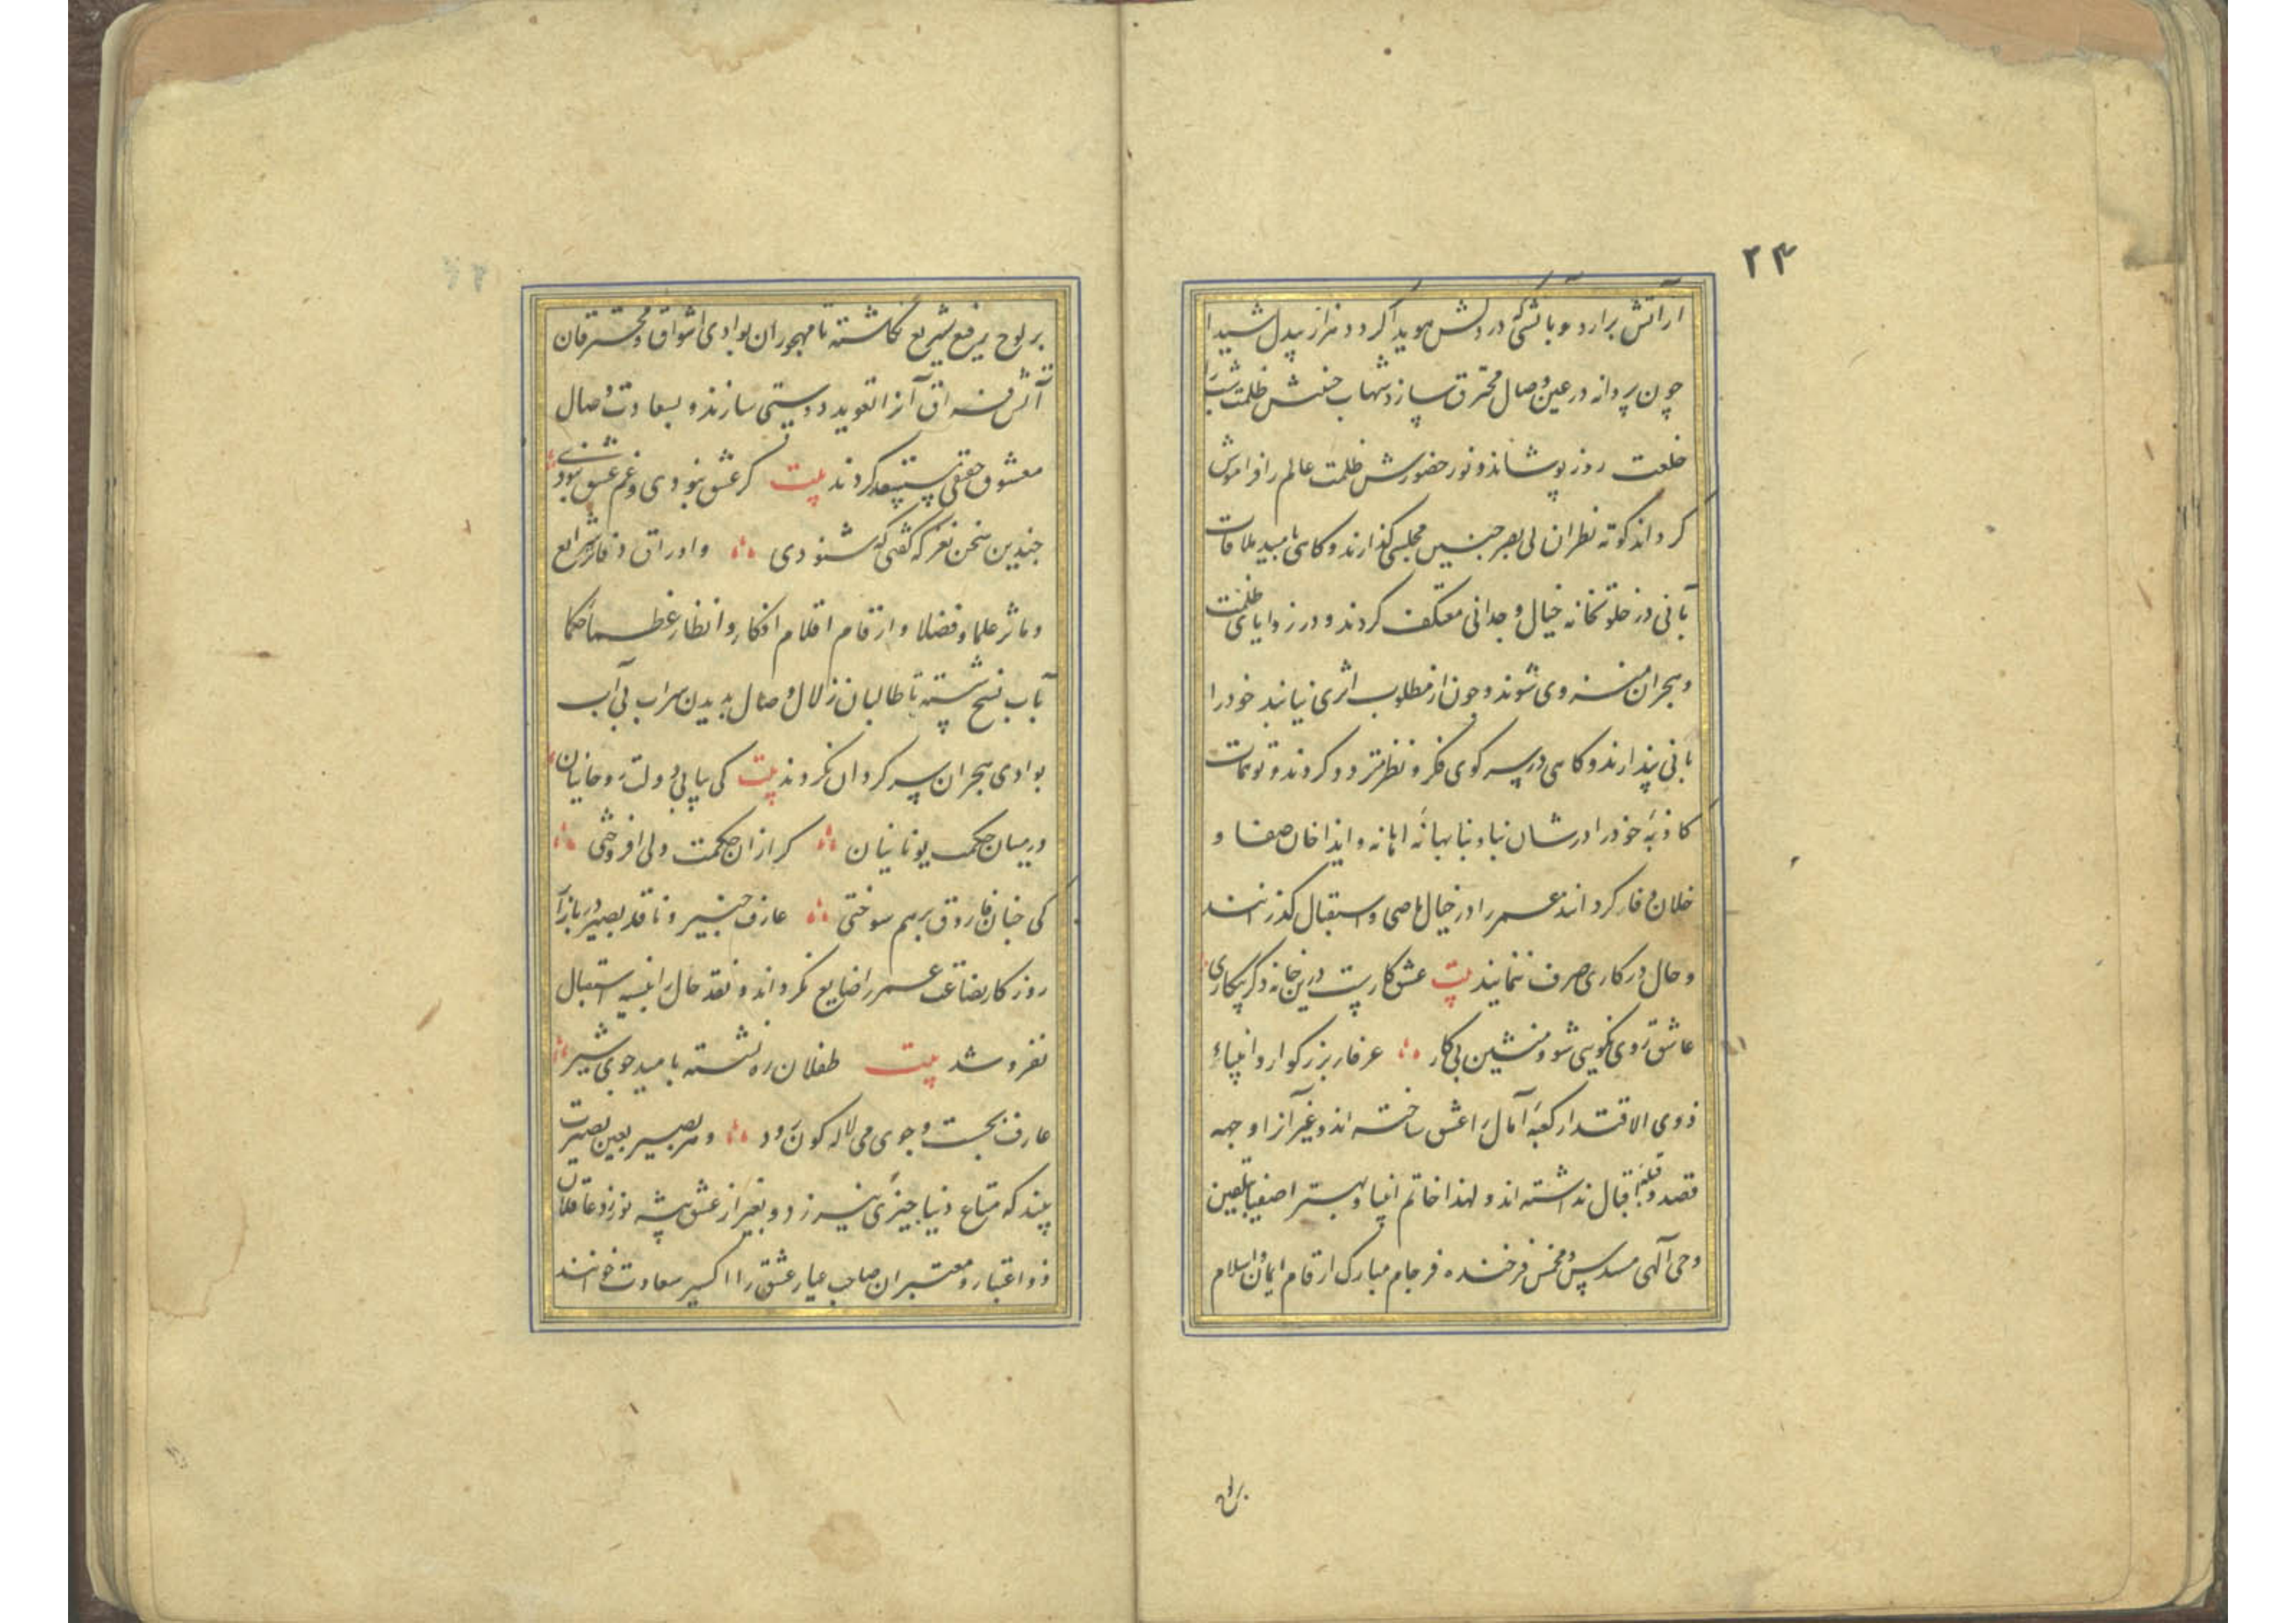 ۲۴
از آتش برارد و بآتشی که در دلش هویدا کردد هزار بیدل شیدا
چون پروانه در عین وصال محترق سازد شهاب ظلمت شب را
خلعت روز پوشاند و نور حضورش ظلمت عالم را فراموش
کرداند کوته نظران بی بصر چنین مجلسی کذارند و کاهی بامید ملاقات
آنی در خلوتخانه خیال وجدانی معتکف کردند و در زوایای ظلمت
و هجران منزوی شوند و چون از مطلوب اثری نیابند خود را
پندارند و کاهی در سر کوی فکر و نظر متردد کردند و توهمات
کاذبهٔ خود را در شان بهانهٔ اهانه و ایذا خان صفا و
خلان وفا کردانند عمر را در خیال ماضی و استقبال کذرانند
و حال در کاری صرف ننمایند بیت عشق کاریست درین خانه دکر بیکاری
عاشق روی نکویی شو و منشین بی کار عرفاء بزرکوار و انبیاء
ذوی الاقتدار کعبهٔ آمال را عشق ساخته اند و غیر آنرا وجهه
قصد و قبلهٔ اقبال نداشته اند و لهذا خاتم انبیا و بهتر اصفیا بتلقین
وحی آلهی مسدس و مخمس فرخنده فرجام مبارک ارقام ایمان و اسلام
بر لوح
بر لوح رفیع شریع نکاشته تا مهجوران بوادی اشواق و محترقان
آتش فراق آنرا تعوید دوستی سازند و بسعادت وصال
معشوق حقیقی مستسعد کردند بیت کر عشق نبودی و غم عشق نبودی
چندین سخن نغز که کفتی که شنودی و اوراق دفاتر شرایع
و مآثر علما و فضلا و ارقام اقلام افکار و انظار عظماء حکما
بآب نسخ شسته تا طالبان زلال وصال بدیدن سراب بی آب
بوادی هجران سر کردان نکردند بیت کی بیابی دولت روحانیان
در میان حکمت یونانیان کر ازان حکمت دلی افروختی
کی چنان فاروق برهم سوختی عارف خبیر و ناقد بصیر در بازار
روزکار بضاعت عمر را ضایع نکرداند و نقد حال را بنسیه استقبال
نفروشد بیت طفلان ره نشسته بامید جوی شیر
عارف بجست و جوی می لاله کون رود و هر بصیر بعین بصیرت
بیند که متاع دنیا بچیزی نیرزد و بغیر از عشق پیشه نورزد عاقلان
ذو اعتبار و معتبران صاحب عیار عشق را اکسیر سعادت خوانند